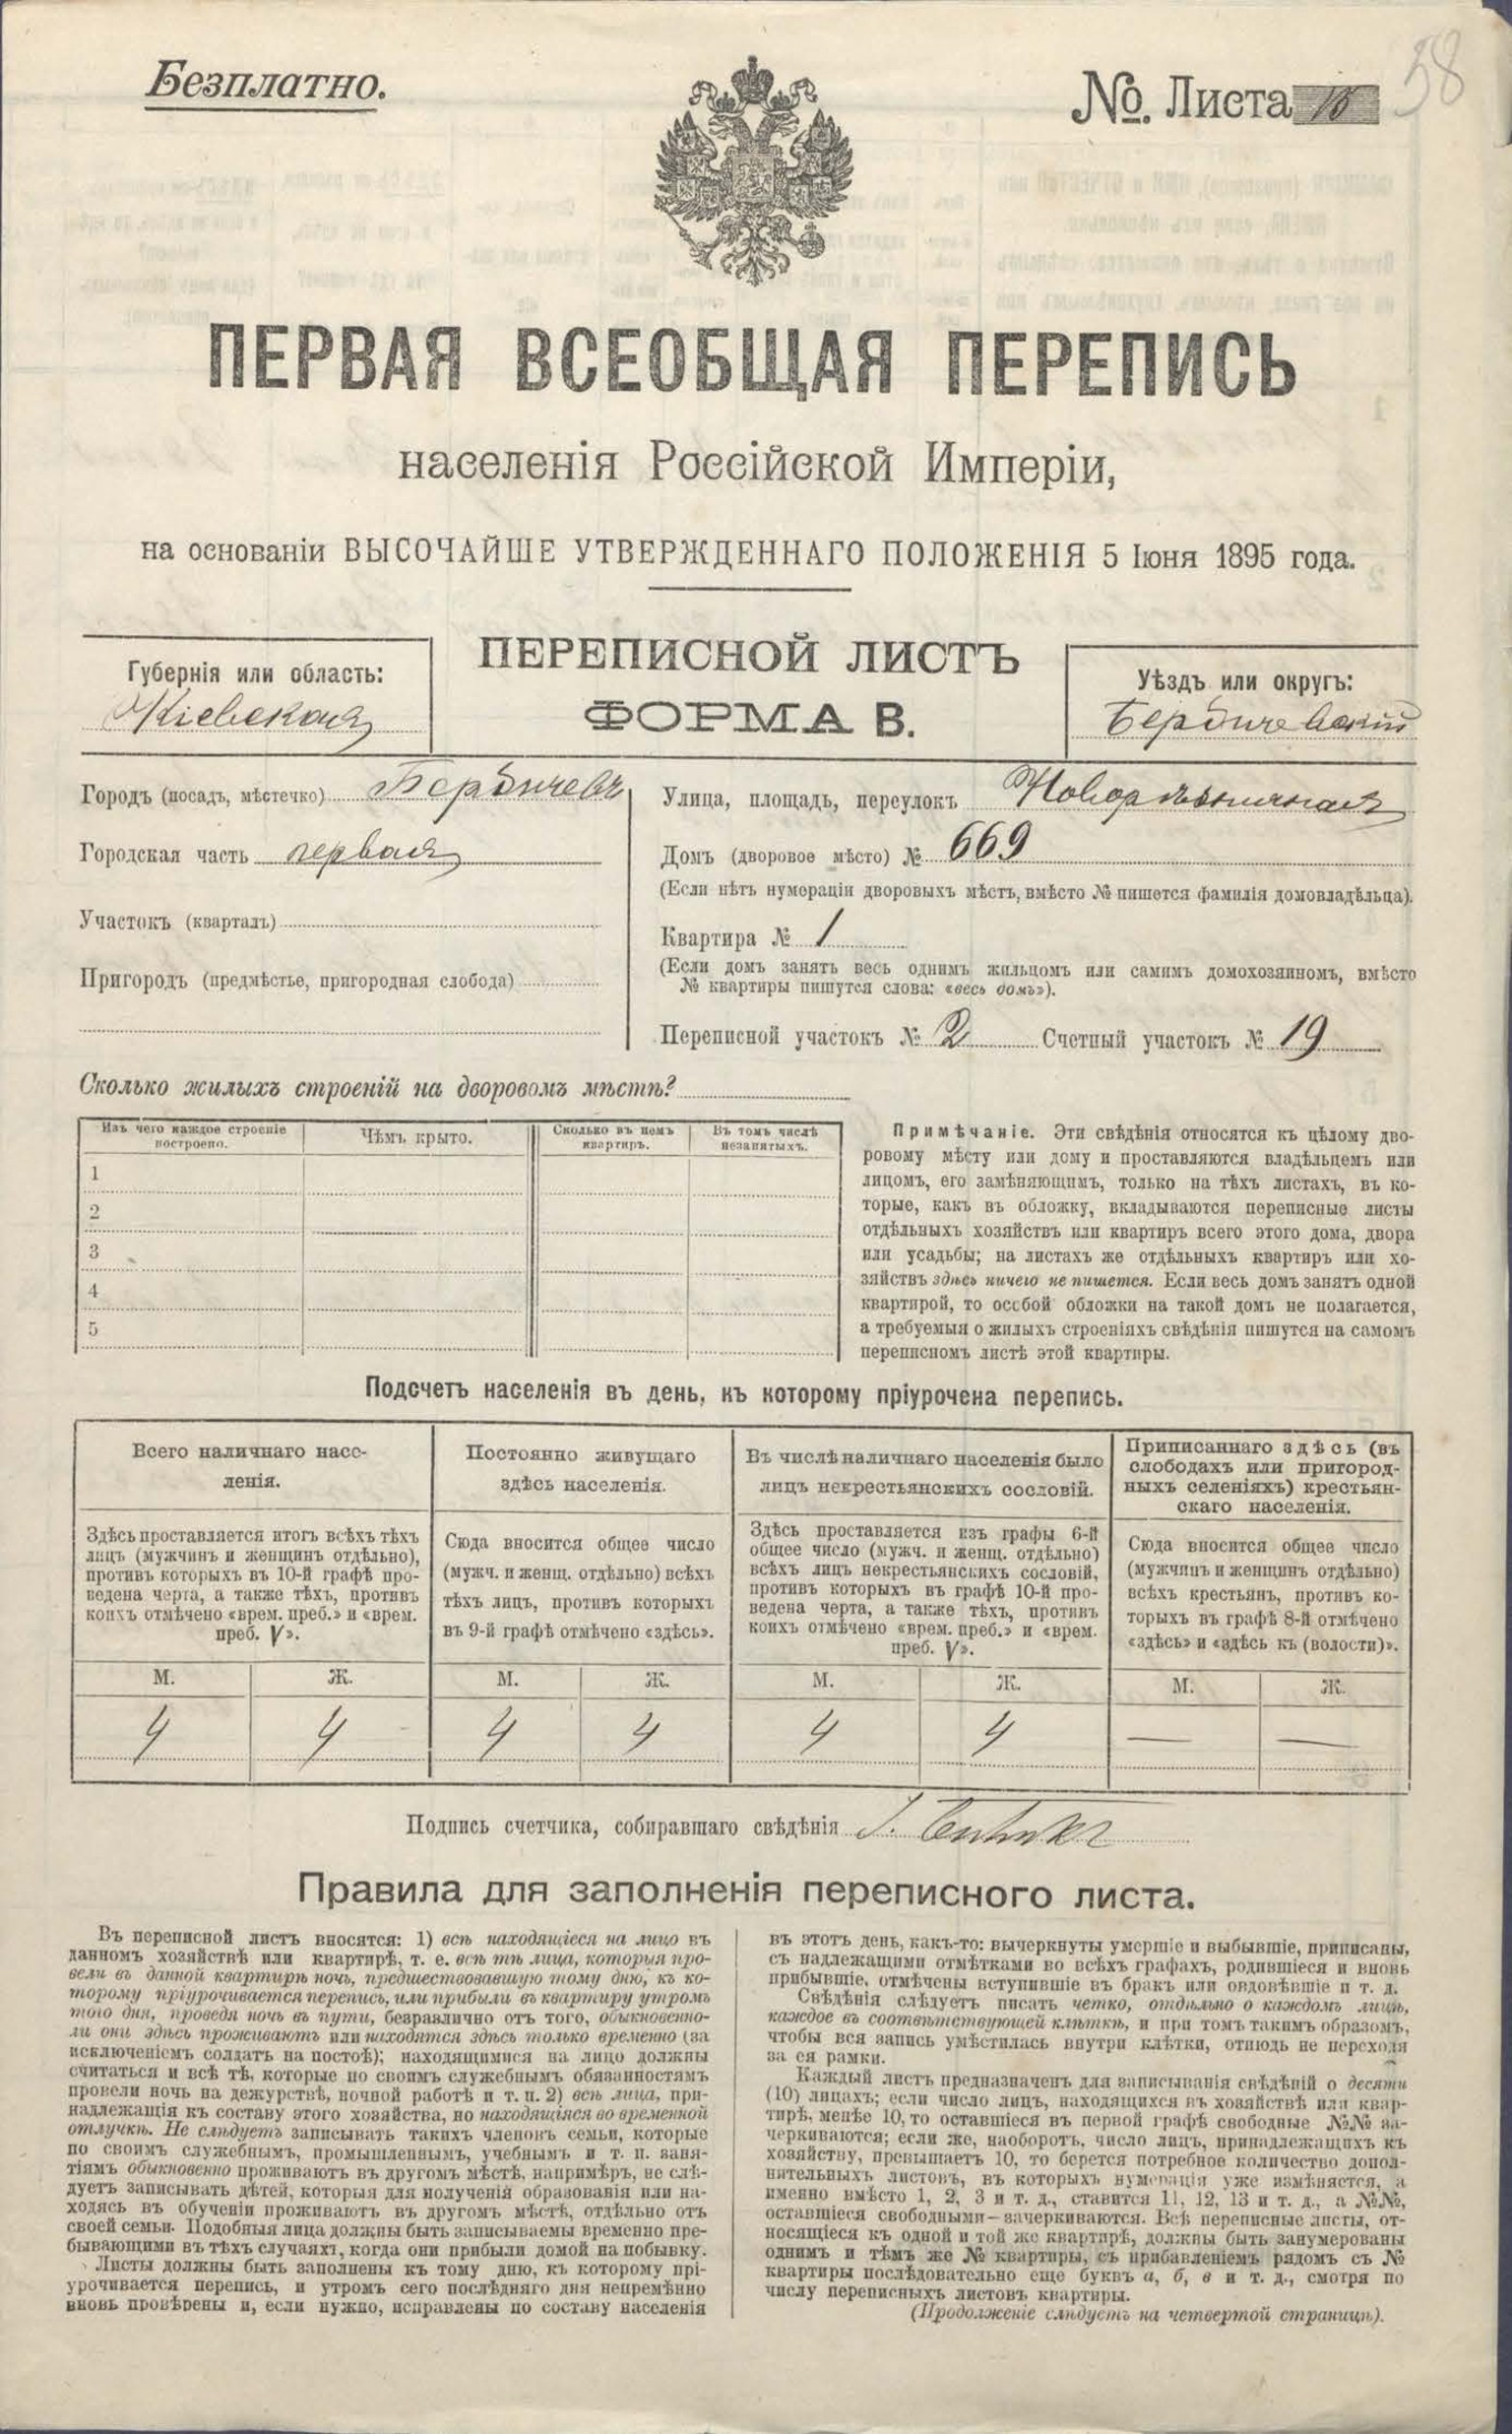 Безплатно.
№. Листа
58
ПЕРВАЯ ВСЕОБЩАЯ ПЕРЕПИСЬ
населенія Россійской Имперіи,
на основаніи ВЫСОЧАЙШЕ УТВЕРЖДЕННАГО ПОЛОЖЕНІЯ 5 Іюня 1895 года.
Губернія или область:
Кіевская
ПЕРЕПИСНОЙ ЛИСТЪ
ФОРМА В.
Уѣздъ или округъ:
Бердичевскій
Городъ (посадъ, мѣстечко) Бердичевъ
Городская часть первая
Участокъ (кварталъ)
Пригородъ (предмѣстье, пригородная слобода)
Улица, площадь, переулокъ
Домъ (дворовое мѣсто) № 669
(Если нѣтъ нумераціи дворовыхъ мѣстъ, вмѣсто № пишется фамилія домовладѣльца).
Квартира № 1
(Если домъ занятъ весь однимъ жильцомъ или самимъ домохозяиномъ, вмѣсто
№ квартиры пишутся слова: «весь домъ»).
Переписной участокъ № 2 Счетный участокъ № 19
Сколько жилыхъ строеній на дворовомъ мѣстѣ?
Изъ чего каждое строеніе построено.
Чѣмъ крыто.
Сколько въ немъ квартиръ.
Въ томъ числѣ незанятыхъ.
1
2
3
4
5
Примѣчаніе. Эти свѣдѣнія относятся къ цѣлому дво-
ровому мѣсту или дому и проставляются владѣльцемъ или
лицомъ, его замѣняющимъ, только на тѣхъ листахъ, въ ко-
торые, какъ въ обложку, вкладываются переписные листы
отдѣльныхъ хозяйствъ или квартиръ всего этого дома, двора
или усадьбы; на листахъ же отдѣльныхъ квартиръ или хо-
зяйствъ здѣсь ничего не пишется. Если весь домъ занятъ одной
квартирой, то особой обложки на такой домъ не полагается,
а требуемыя о жилыхъ строеніяхъ свѣдѣнія пишутся на самомъ
переписномъ листѣ этой квартиры.
Подсчетъ населенія въ день, къ которому пріурочена перепись.
Всего наличнаго насе-
ленія.
Здѣсь проставляется итогъ всѣхъ тѣхъ
лицъ (мужчинъ и женщинъ отдѣльно),
противъ которыхъ въ 10-й графѣ про-
ведена черта, а также тѣхъ, противъ
коихъ отмѣчено «врем. преб.» и «врем.
преб. V».
Постоянно живущаго
здѣсь населенія.
Сюда вносится общее число
(мужч. и женщ. отдѣльно) всѣхъ
тѣхъ лицъ, противъ которыхъ
въ 9-й графѣ отмѣчено «здѣсь».
Въ числѣ наличнаго населенія было
лицъ некрестьянскихъ сословій.
Здѣсь проставляется изъ графы 6-й
общее число (мужч. и женщ. отдѣльно)
всѣхъ лицъ некрестьянскихъ сословій,
противъ которыхъ въ графѣ 10-й про-
ведена черта, а также тѣхъ, противъ
коихъ отмѣчено «врем. преб.» и «врем.
преб. V».
Приписаннаго здѣсь (въ
слободахъ или пригород-
ныхъ селеніяхъ) крестьян-
скаго населенія.
Сюда вносится общее число
(мужчинъ и женщинъ отдѣльно)
всѣхъ крестьянъ, противъ ко-
торыхъ въ графѣ 8-й отмѣчено
«здѣсь» и «здѣсь къ (волости)».
М. Ж. М. Ж. М. Ж. М. Ж.
4 4 4 4 4 4 — —
Подпись счетчика, собиравшаго свѣдѣнія
Правила для заполненія переписного листа.
Въ переписной листъ вносятся: 1) всѣ находящіеся на лицо въ
данномъ хозяйствѣ или квартирѣ, т. е. всѣ тѣ лица, которыя про-
вели въ данной квартирѣ ночь, предшествовавшую тому дню, къ ко-
торому пріурочивается перепись, или прибыли въ квартиру утромъ
того дня, проведя ночь въ пути, безразлично отъ того, обыкновенно-
ли они здѣсь проживаютъ или находятся здѣсь только временно (за
исключеніемъ солдатъ на постоѣ); находящимися на лицо должны
считаться и всѣ тѣ, которые по своимъ служебнымъ обязанностямъ
провели ночь на дежурствѣ, ночной работѣ и т. п. 2) всѣ лица, при-
надлежащія къ составу этого хозяйства, но находящіяся во временной
отлучкѣ. Не слѣдуетъ записывать такихъ членовъ семьи, которые
по своимъ служебнымъ, промышленнымъ, учебнымъ и т. п. заня-
тіямъ обыкновенно проживаютъ въ другомъ мѣстѣ, напримѣръ, не слѣ-
дуетъ записывать дѣтей, которыя для полученія образованія или на-
ходясь въ обученіи проживаютъ въ другомъ мѣстѣ, отдѣльно отъ
своей семьи. Подобныя лица должны быть записываемы временно пре-
бывающими въ тѣхъ случаяхъ, когда они прибыли домой на побывку.
Листы должны быть заполнены къ тому дню, къ которому прі-
урочивается перепись, и утромъ сего послѣдняго дня непремѣнно
вновь провѣрены и, если нужно, исправлены по составу населенія
въ этотъ день, какъ-то: вычеркнуты умершіе и выбывшіе, приписаны,
съ надлежащими отмѣтками во всѣхъ графахъ, родившіеся и вновь
прибывшіе, отмѣчены вступившіе въ бракъ или овдовѣвшіе и т. д.
Свѣдѣнія слѣдуетъ писать четко, отдѣльно о каждомъ лицѣ,
каждое въ соотвѣтствующей клѣткѣ, и при томъ такимъ образомъ,
чтобы вся запись умѣстилась внутри клѣтки, отнюдь не переходя
за ея рамки.
Каждый листъ предназначенъ для записыванія свѣдѣній о десяти
(10) лицахъ; если число лицъ, находящихся въ хозяйствѣ или квар-
тирѣ, менѣе 10, то оставшіеся въ первой графѣ свободные №№ за-
черкиваются; если же, наоборотъ, число лицъ, принадлежащихъ къ
хозяйству, превышаетъ 10, то берется потребное количество допол-
нительныхъ листовъ, въ которыхъ нумерація уже измѣняется, а
именно вмѣсто 1, 2, 3 и т. д., ставится 11, 12, 13 и т. д., а №№,
оставшіеся свободными—зачеркиваются. Всѣ переписные листы, от-
носящіеся къ одной и той же квартирѣ, должны быть занумерованы
однимъ и тѣмъ же № квартиры, съ прибавленіемъ рядомъ съ №
квартиры послѣдовательно еще буквъ а, б, в и т. д., смотря по
числу переписныхъ листовъ квартиры.
(Продолженіе слѣдуетъ на четвертой страницѣ).